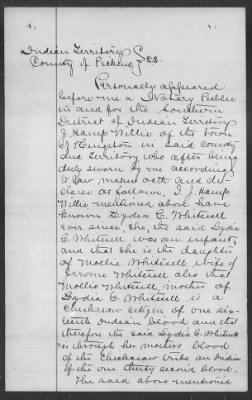 Indian Territory } SS.
County of Pickens
Personally appeared
before me a Notary Public
in and for the Southern
District of Indian Territory
J Hamp Willis of the town
of Kingston in said county
and Territory who after being
duly sworn by me according
to law, makes oath and de-
clares as follows. I J Hamp
Willis mentioned above have
known Lydia C. Whitnell
ever since, she, the said Lydia
C. Whitnell was an infant
and that she is the daughter
of Mollie Whitnell wife of
Jerome Whitnell also that
Mollie Whitnell mother of
Lydia C. Whitnell is a
Chickasaw citizen of one six-
teenth Indian blood and that
therefore the said Lydia C. Whitnell
is through her mothers blood
of the Chickasaw tribe an Indian
of the one thirty second blood.
The said above mentioned